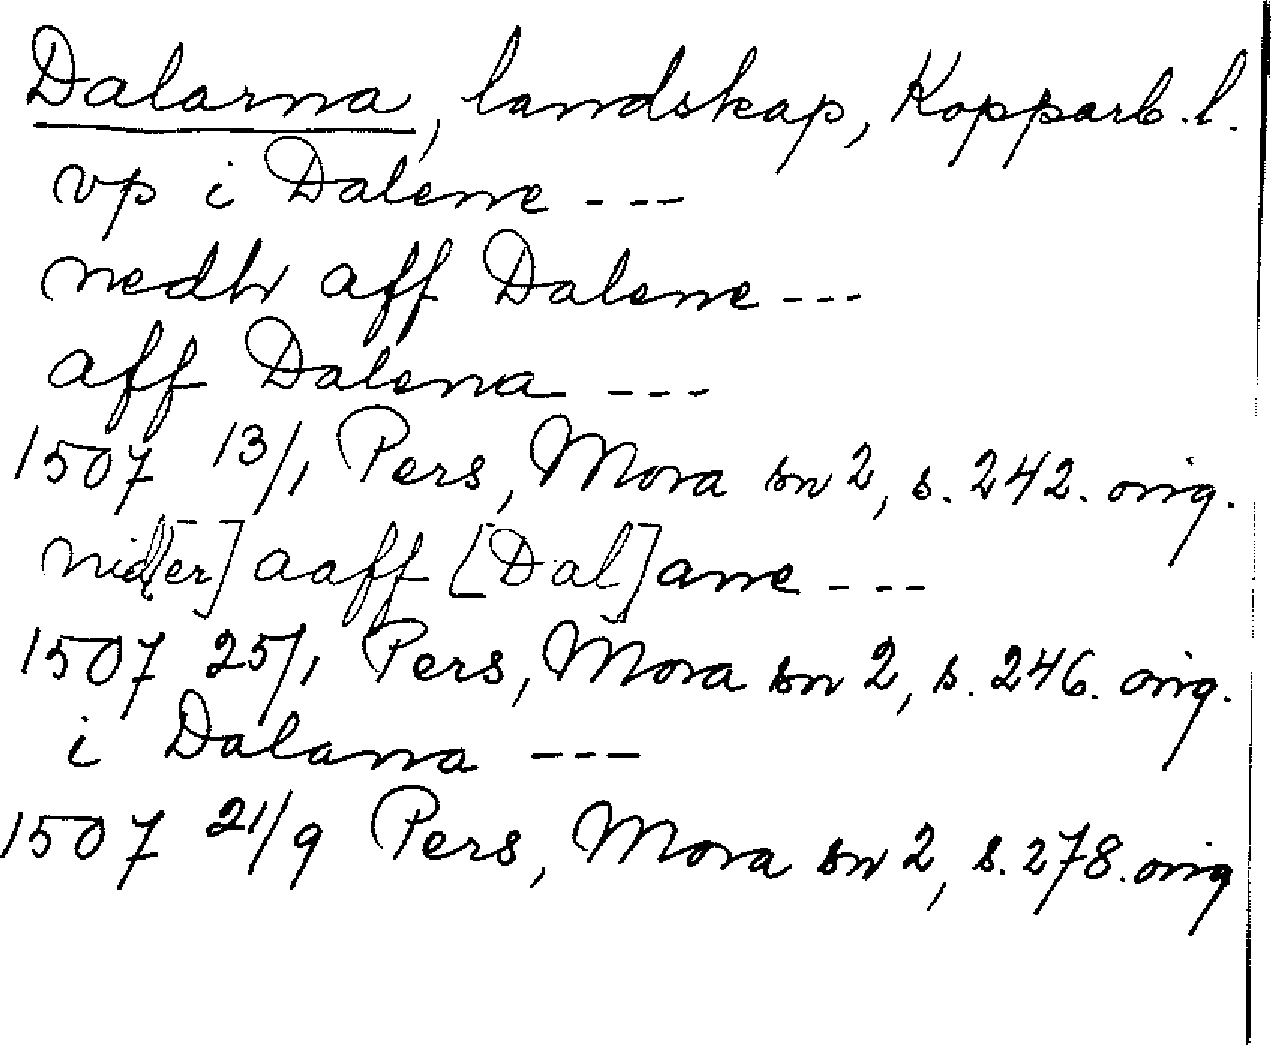 Dalarna, landskap, Kopparb. l.
vp i Dalene ---
nedhr aff Dalene ---
aff Dalena ---
1507 13/1 Pers, Mora sn 2, s. 242. orig.
nid[er] aaff [Dal]anne ---
1507 25/1 Pers, Mora sn 2, s. 246. orig.
i Dalana ---
1507 21/9 Pers, Mora sn 2, s. 278. orig